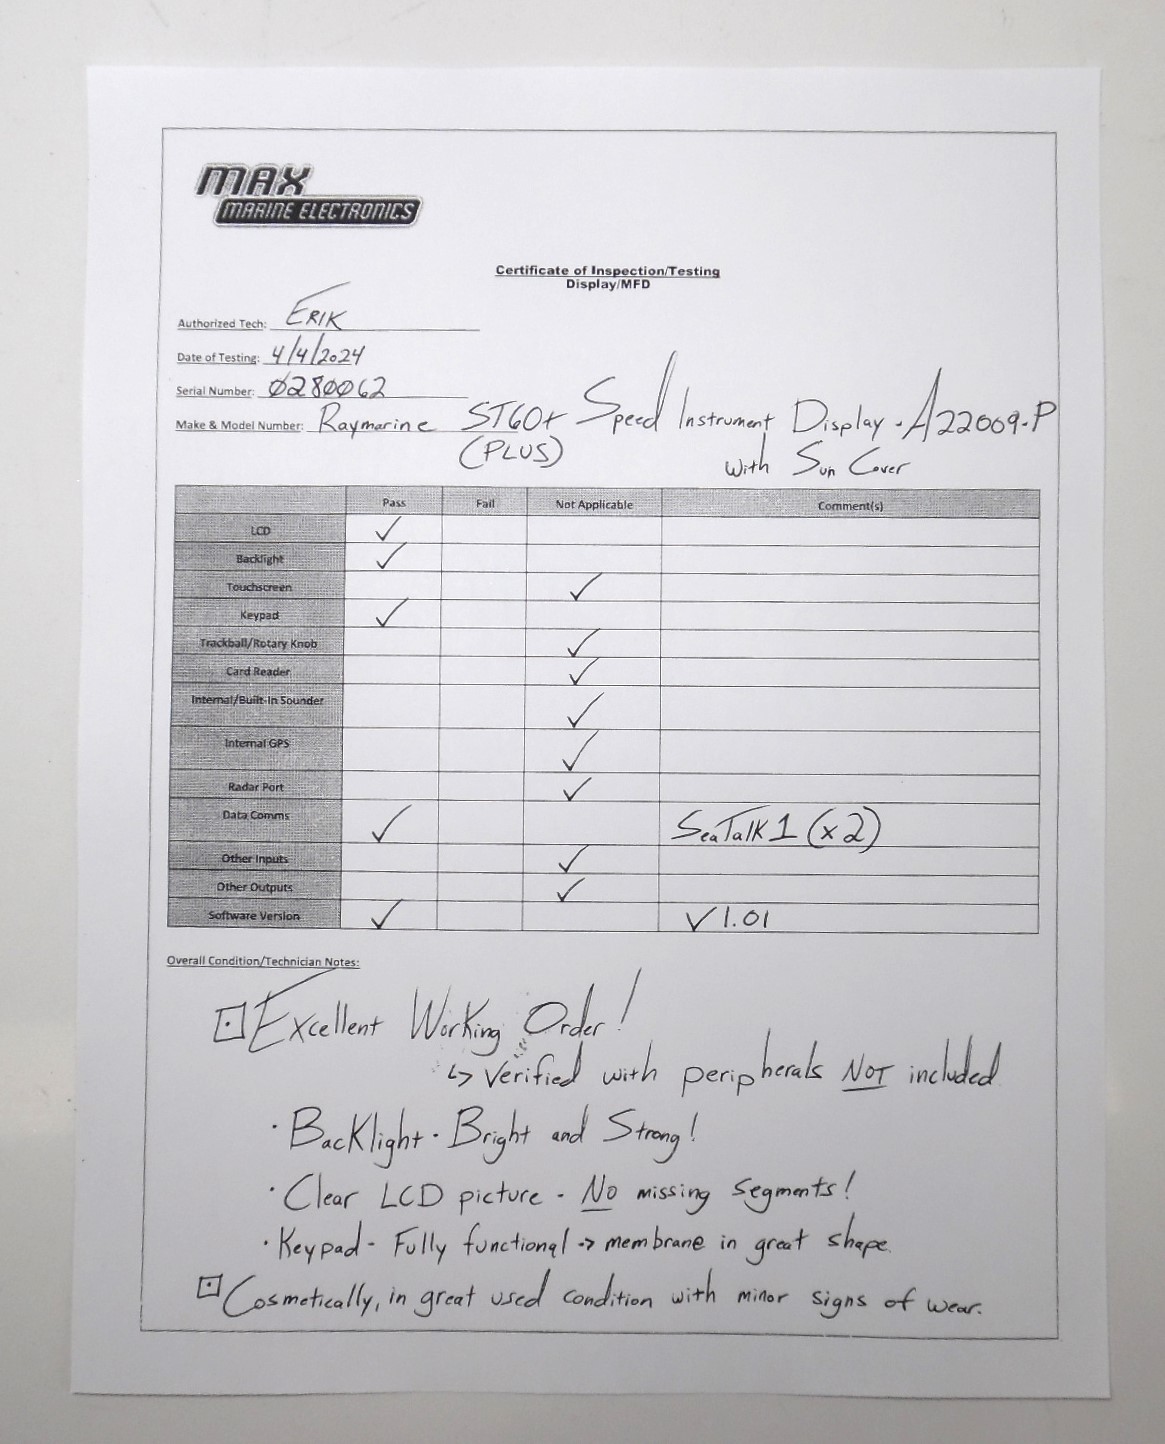 MAX
MARINE ELECTRONICS
Certificate of Inspection/Testing
Display/MFD
Authorized Tech: ERIK
Date of Testing: 4/4/2024
Serial Number: 0280062
Make & Model Number: Raymarine ST60+ Speed Instrument Display - A22009-P
(PLUS) with Sun Cover
Pass Fail Not Applicable Comment(s)
LCD ✓
Backlight ✓
Touchscreen ✓
Keypad ✓
Trackball/Rotary Knob ✓
Card Reader ✓
Internal/Built-In Sounder ✓
Internal GPS ✓
Radar Port ✓
Data Comms ✓ SeaTalk 1 (x2)
Other Inputs ✓
Other Outputs ✓
Software Version ✓ V1.01
Overall Condition/Technician Notes:
⊡ Excellent Working Order!
↳ Verified with peripherals NOT included
· Backlight - Bright and Strong!
· Clear LCD picture - No missing segments!
· Keypad - Fully functional → membrane in great shape.
⊡ Cosmetically, in great used condition with minor signs of wear.